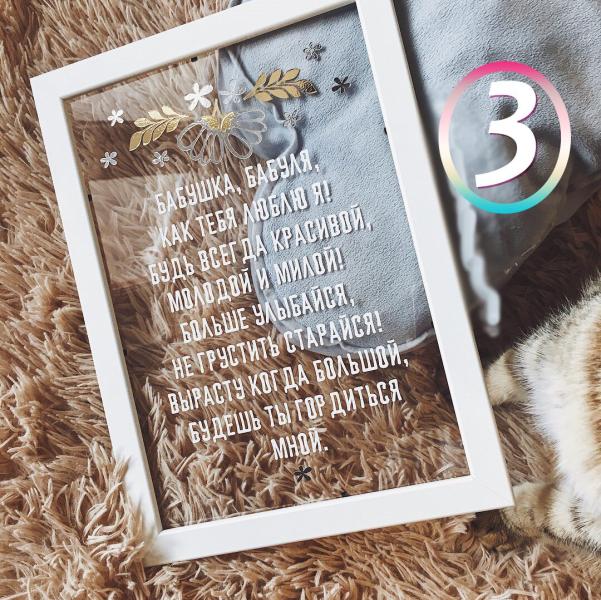 3
БАБУШКА, БАБУЛЯ,
КАК ТЕБЯ ЛЮБЛЮ Я!
БУДЬ ВСЕГДА КРАСИВОЙ,
МОЛОДОЙ И МИЛОЙ!
БОЛЬШЕ УЛЫБАЙСЯ,
НЕ ГРУСТИТЬ СТАРАЙСЯ!
ВЫРАСТУ КОГДА БОЛЬШОЙ,
БУДЕШЬ ТЫ ГОРДИТЬСЯ
МНОЙ.